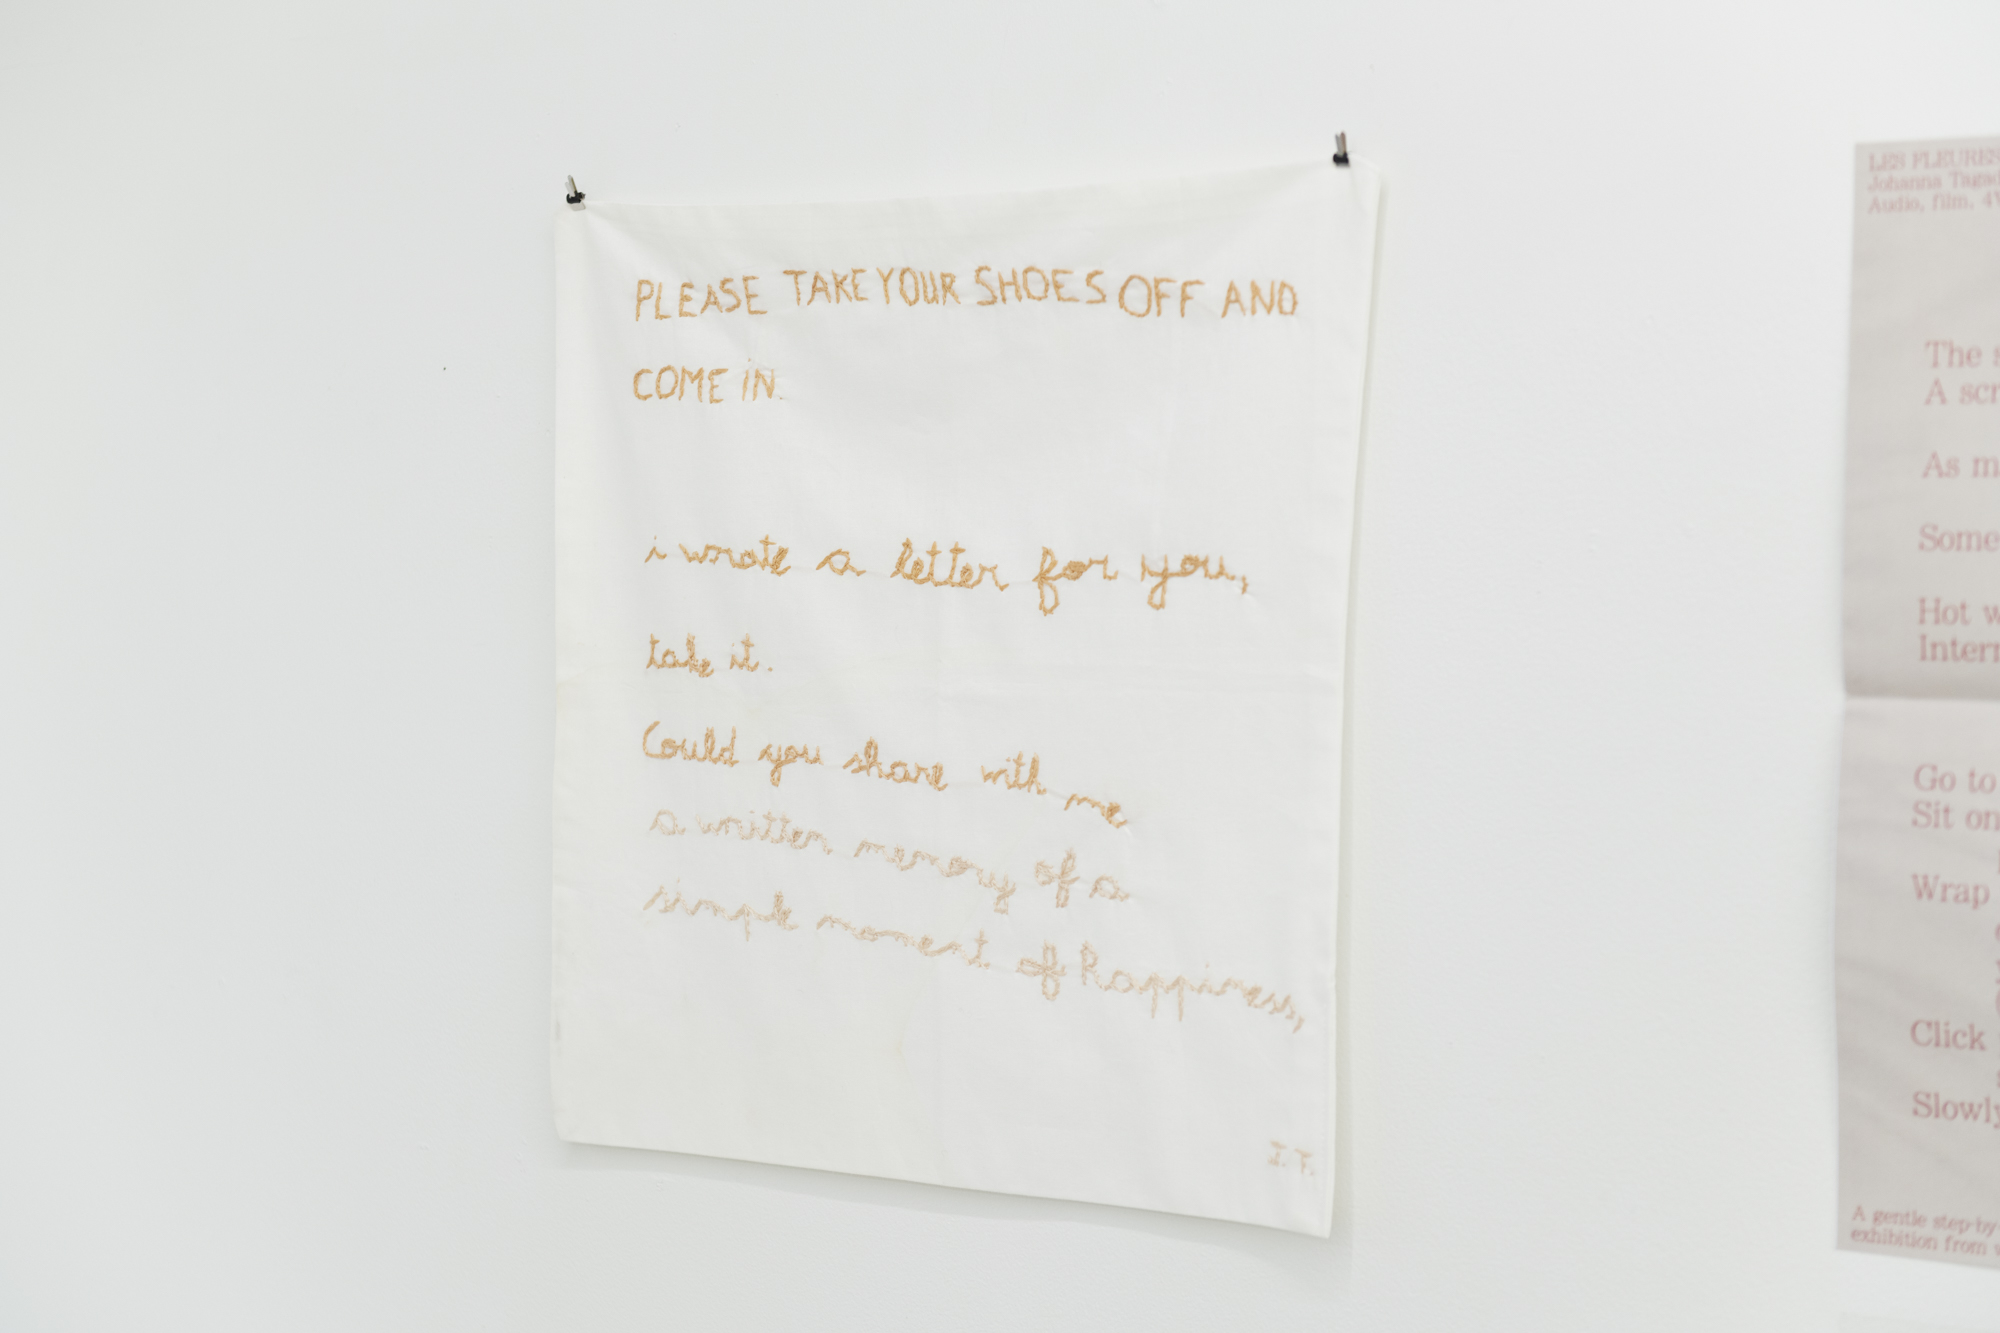 PLEASE TAKE YOUR SHOES OFF AND
COME IN.
i wrote a letter for you,
take it.
Could you share with me
a written memory of a
simple moment of happiness,
I.T.
LES FLEURES
Johanna
Audio, film,
The
A
As
Some
Hot
Go to
Sit on
Wrap
Click
Slowly
A gentle step-by
exhibition from